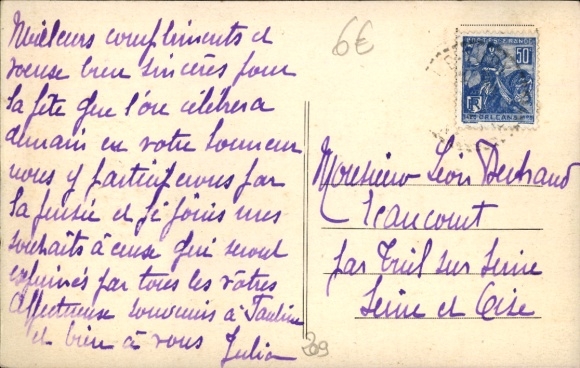 Meilleurs compliments et
voeux bien sincères pour
la fête que l'on célébrera
demain en votre honneur
nous y participerons par
la pensée et je joins mes
souhaits à ceux qui seront
exprimés par tous les vôtres
Affectueux souvenirs à Pauline
et bien à vous Julia
6€
POSTES FRANCE
50c
ORLEANS
Monsieur Léon Bertrand
par Triel sur Seine
Seine et Oise
209